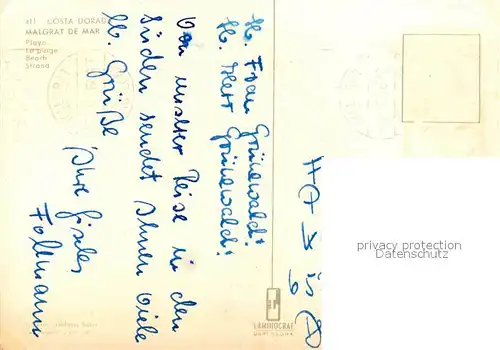 411 COSTA DORADA
MALGRAT DE MAR
Playa
La plage
Beach
Strand
H. Frau Grünewald!
H. Herr Grünewald!
Von unserer Reise in den
Süden sendet Ihnen viele
H. Grüße
Ihre
Follmann
privacy protection
Datenschutz
LAMINOGRAF
BARCELONA